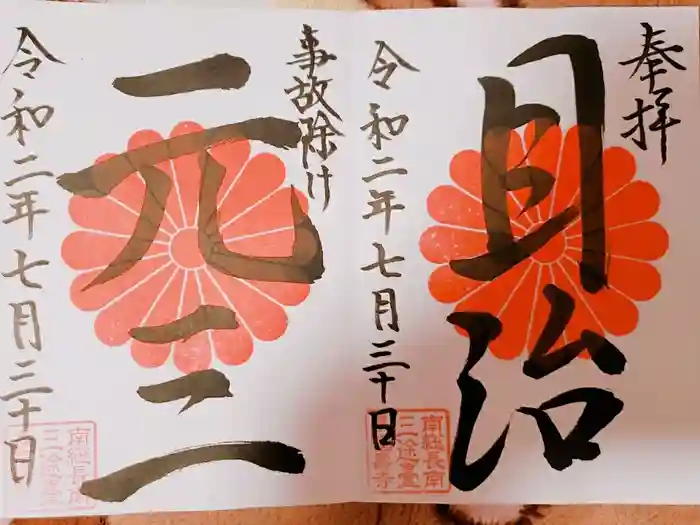 奉拝
明治
令和二年七月三十日
南総長南
三途臺
事故除け
元三
令和二年七月三十日
南総長南
三途臺